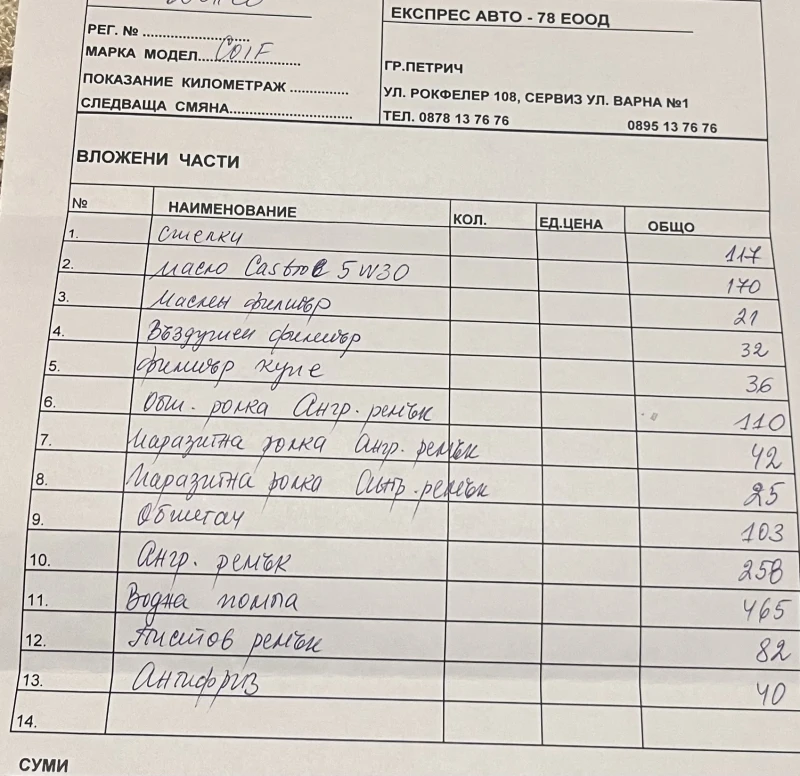 ЕКСПРЕС АВТО - 78 ЕООД
РЕГ. №
МАРКА МОДЕЛ
ГР.ПЕТРИЧ
ПОКАЗАНИЕ КИЛОМЕТРАЖ
УЛ. РОКФЕЛЕР 108, СЕРВИЗ УЛ. ВАРНА №1
СЛЕДВАЩА СМЯНА
ТЕЛ. 0878 13 76 76 0895 13 76 76
ВЛОЖЕНИ ЧАСТИ
№ НАИМЕНОВАНИЕ КОЛ. ЕД.ЦЕНА ОБЩО
1. стелки 117
2. масло Castrol 5W30 170
3. Маслен филтър 21
4. Въздушен филтър 32
5. филтър купе 36
6. Общ. ролка Ангр. ремък 110
7. Паразитна ролка Ангр. ремък 42
8. Паразитна ролка Ангр. ремък 25
9. Обтегач 103
10. Ангр. ремък 258
11. Водна помпа 465
12. Пистов ремък 82
13. Антифриз 40
14.
СУМИ